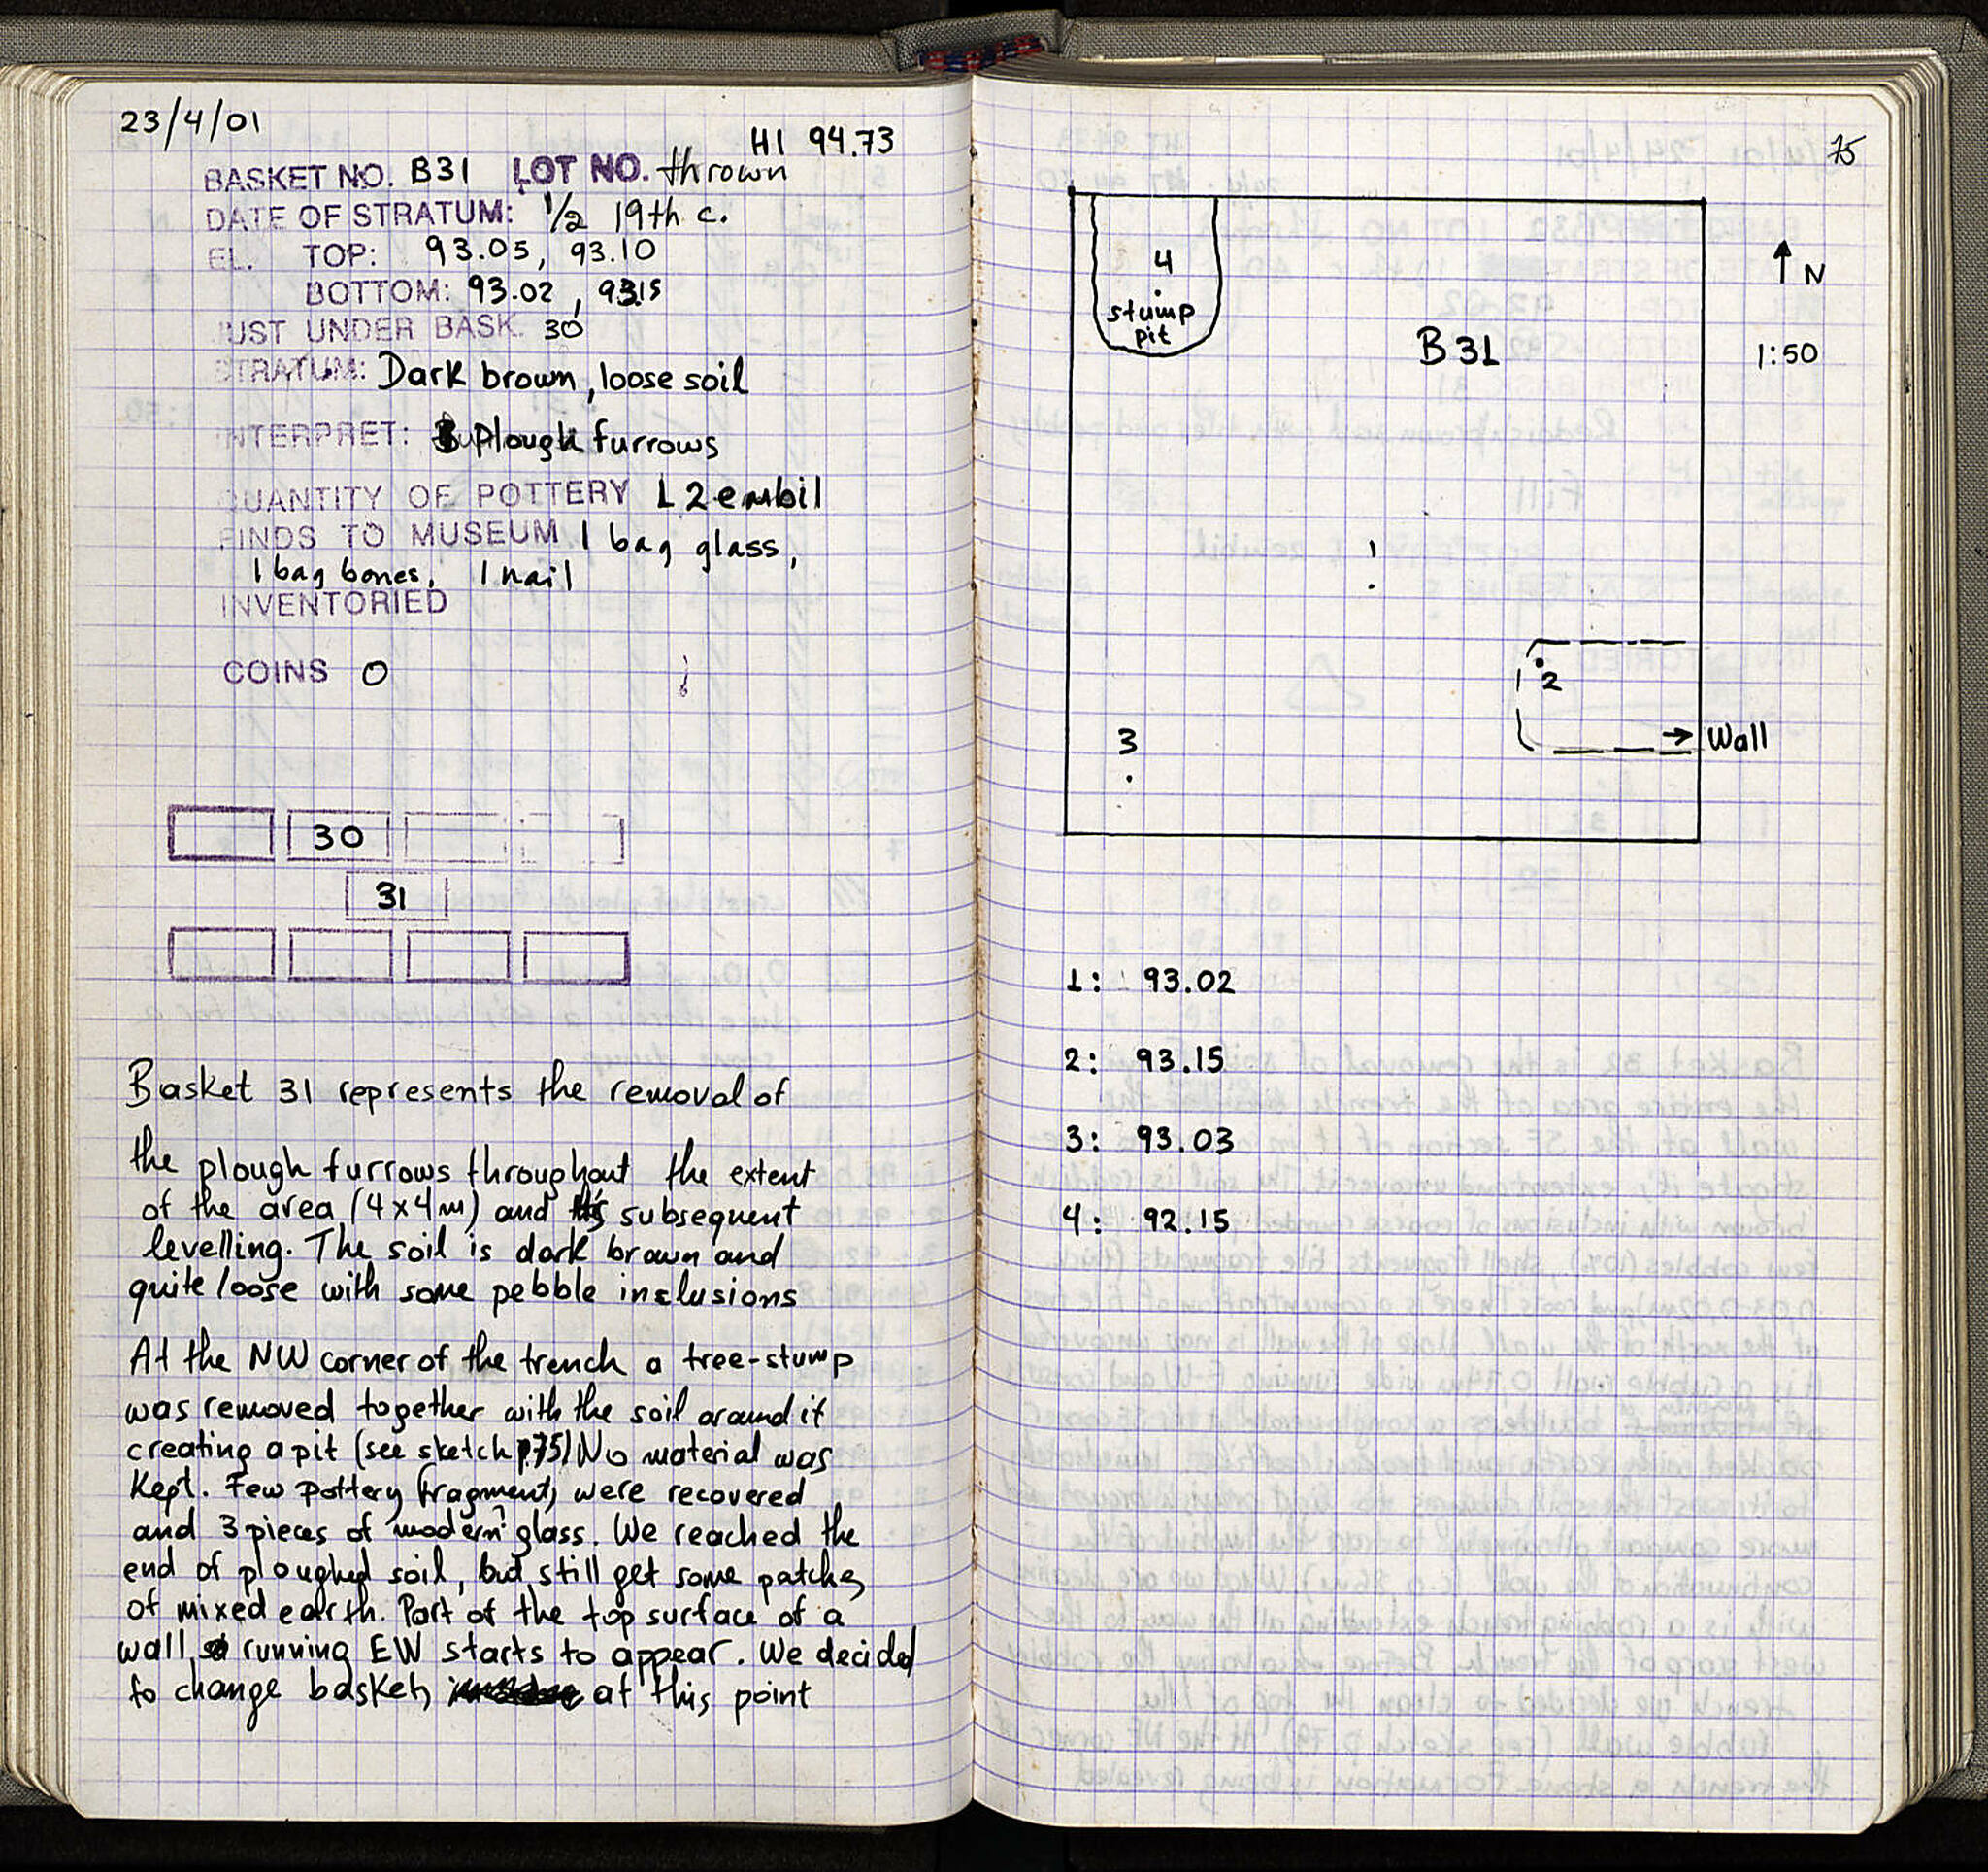 23/4/01
HI 94.73
BASKET NO. B31 LOT NO. thrown
DATE OF STRATUM: 1/2 19th c.
EL. TOP: 93.05, 93.10
BOTTOM: 93.02, 93.15
JUST UNDER BASK. 30
STRATUM: Dark brown, loose soil
INTERPRET: Plough furrows
QUANTITY OF POTTERY 1 zembil
FINDS TO MUSEUM 1 bag glass,
1 bag bones, 1 nail
INVENTORIED
COINS 0
30
31
Basket 31 represents the removal of
the plough furrows throughout the extent
of the area (4x4m) and its subsequent
levelling. The soil is dark brown and
quite loose with some pebble inclusions
At the NW corner of the trench a tree-stump
was removed together with the soil around it
creating a pit (see sketch p75) No material was
kept. Few pottery fragments were recovered
and 3 pieces of "modern" glass. We reached the
end of ploughed soil, but still get some patches
of mixed earth. Part of the top surface of a
wall running EW starts to appear. We decided
to change baskets at this point
75
4
stump
pit
B31
N
1:50
1
2
Wall
3
1: 93.02
2: 93.15
3: 93.03
4: 92.15